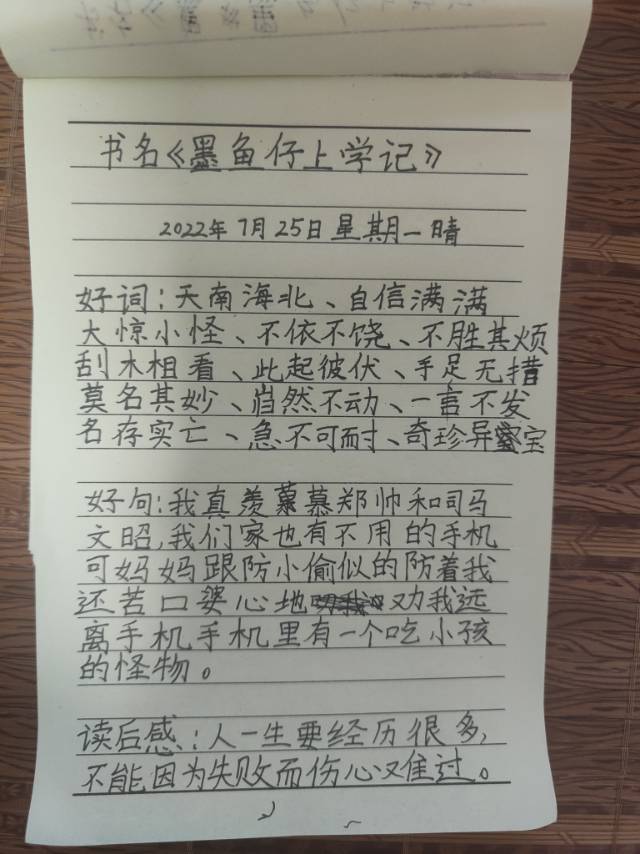 书名《墨鱼仔上学记》
2022年7月25日星期一晴
好词:天南海北、自信满满
大惊小怪、不依不饶、不胜其烦
刮木相看、此起彼伏、手足无措
莫名其妙、岿然不动、一言不发
名存实亡、急不可耐、奇珍异宝
好句:我真羡慕郑帅和司马
文昭,我们家也有不用的手机
可妈妈跟防小偷似的防着我
还苦口婆心地劝我远
离手机手机里有一个吃小孩
的怪物。
读后感:人一生要经历很多,
不能因为失败而伤心难过。